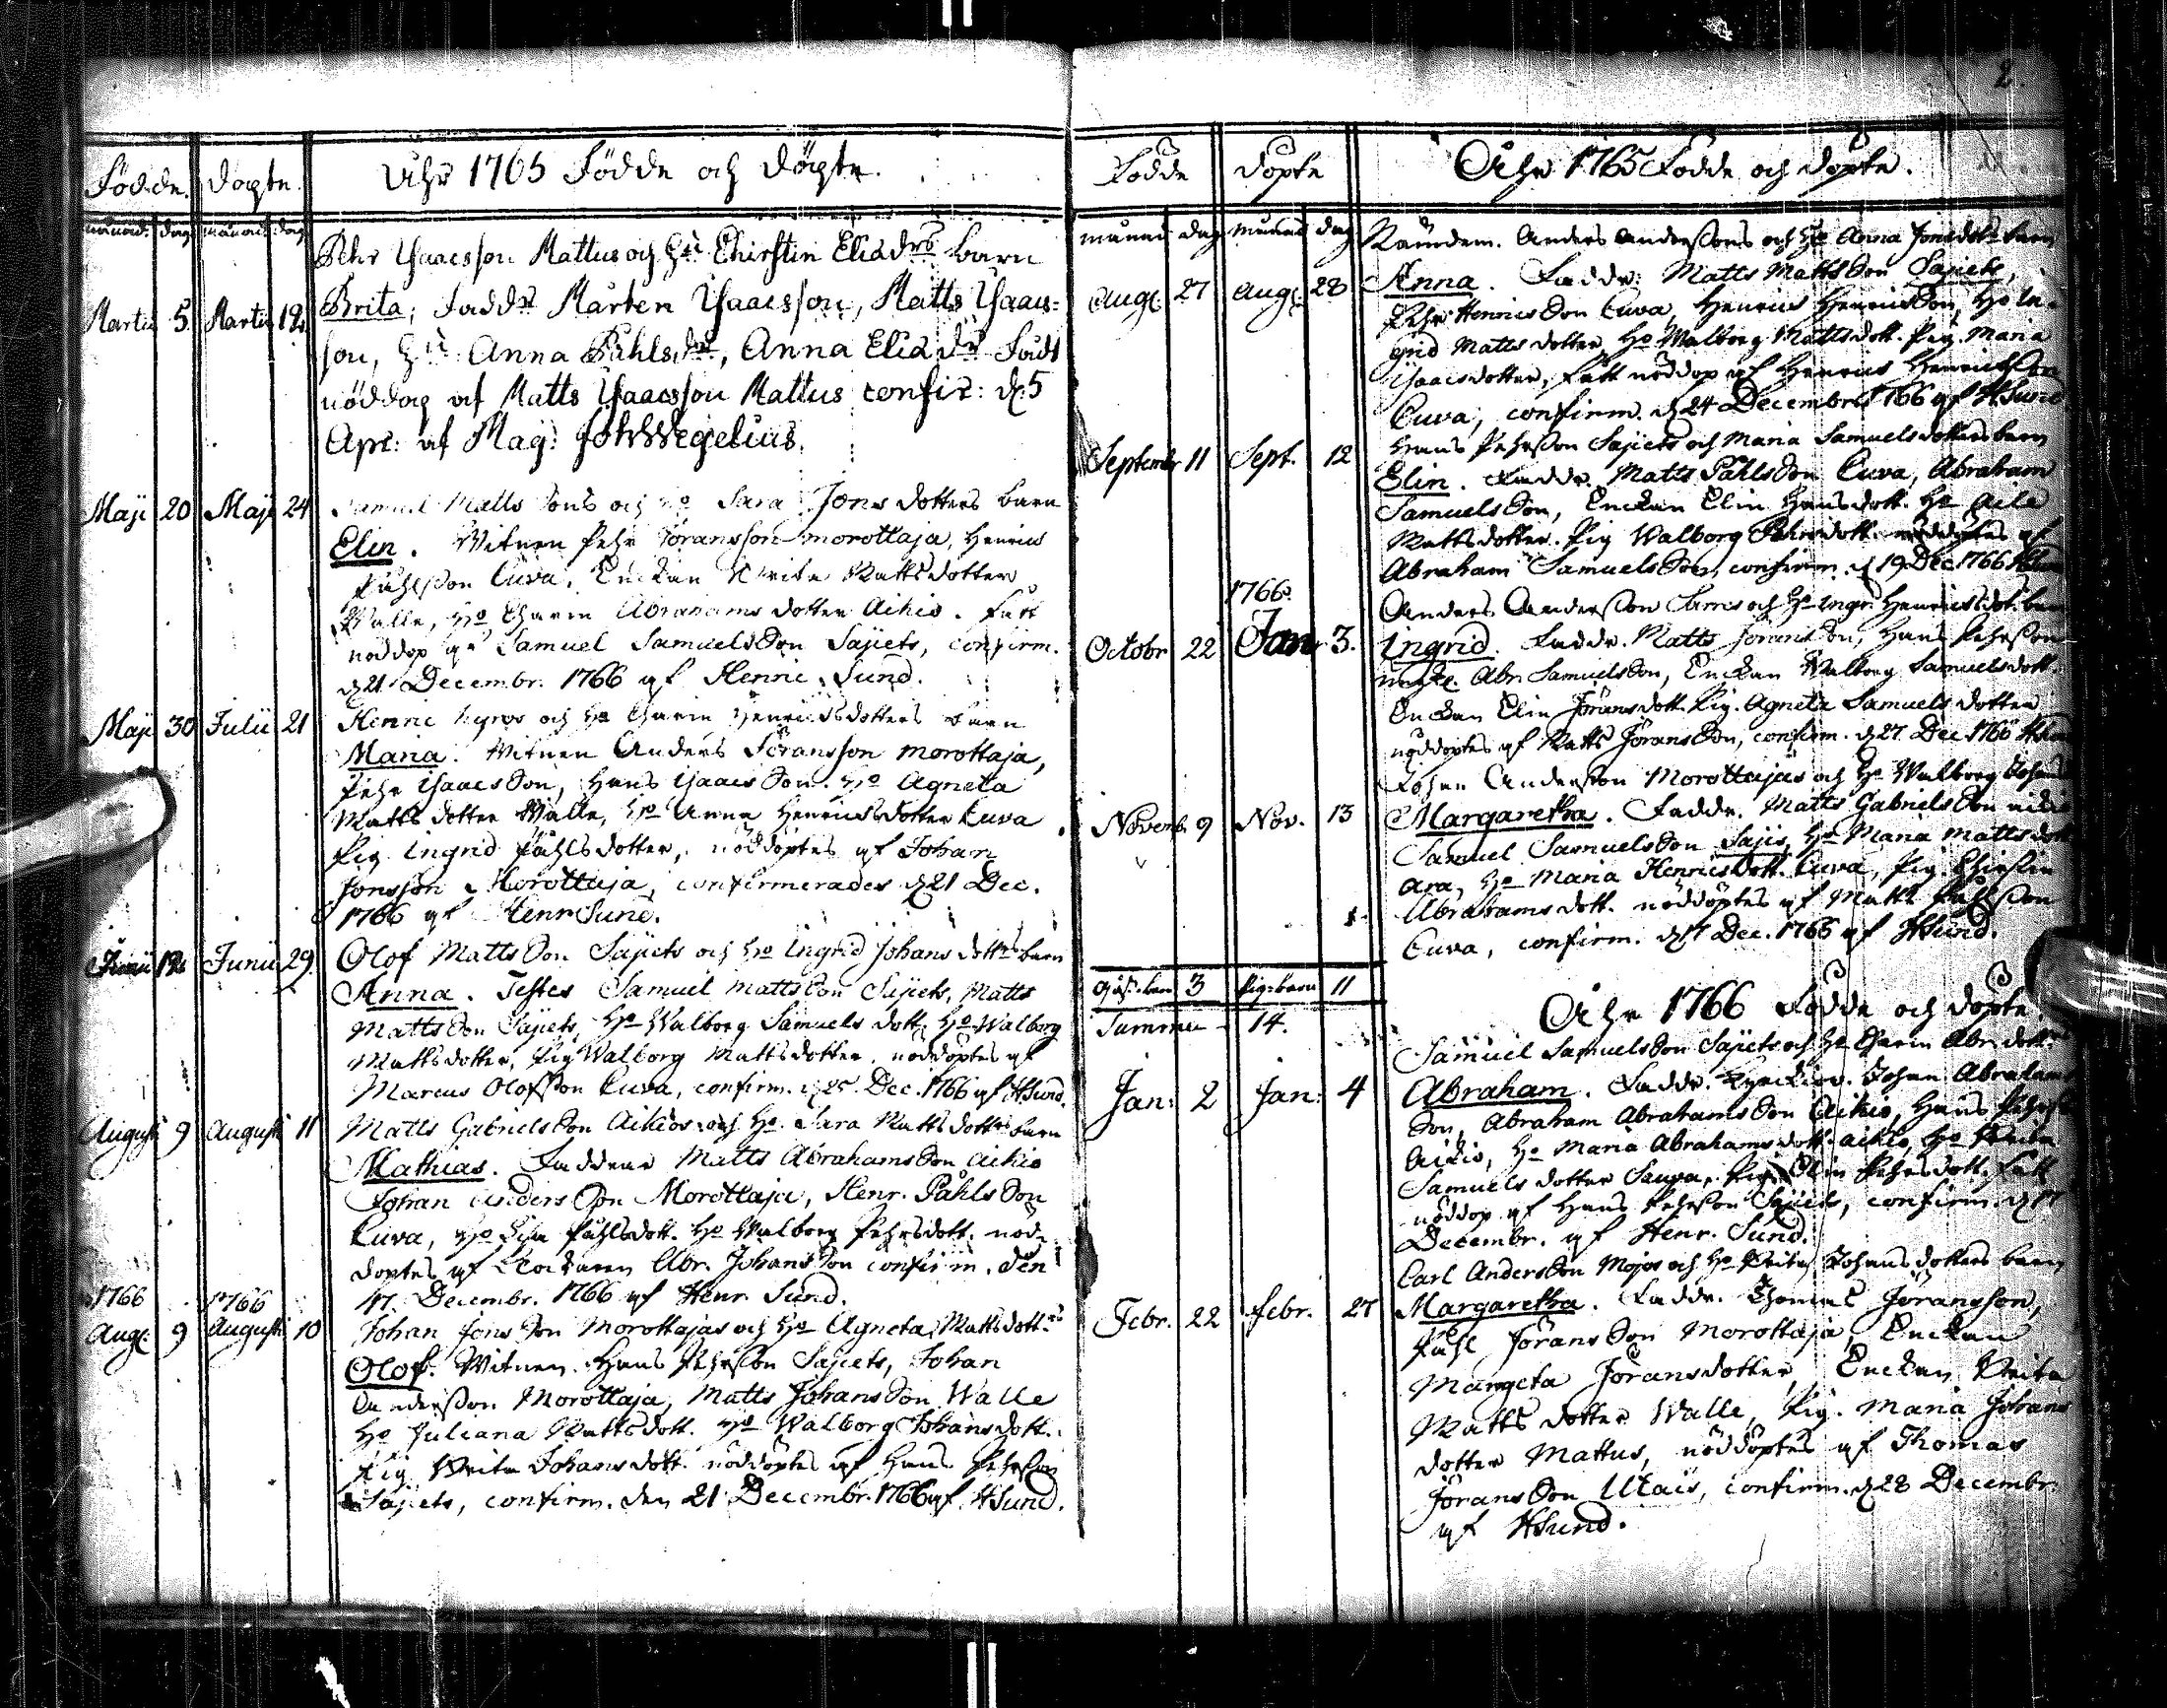 2.
Födde. döpte. Åhr 1765 Födde och döpte.
månad. dag månad dag
Pehr Isaacsson Mattus och hu Chirstin Eliædrs barn
Martii 5 Martii 12 Brita, Faddr Mårten Isaacsson, Matts Isaacs-
son, hu Anna Påhlsdr, Anna Eliædr Fådt
nöddop af Matts Isaacsson Mattus confir: d: 5
Apr: af Mag: Joh Wegelius.
Maji 20 Maji 24 Samuel Matts Sons och Ho Sara Jons dotters barn
Elin. Witnen Pehr Jöransson Morottaja, Henric
Påhlsson Cuva, Enckan Brita Mattsdotter
Walle, Ho Charin Abrahams dotter Aikio. Fått
nöddop af Samuel Samuelsson Sajets, confirm.
d 21 Decembr. 1766 af Henric Sund.
Maji 30 Julii 21 Henric och Ho Charin Henricsdotters barn
Maria. Witnen Anders Jöransson Morottaja,
Pehr Isaacsson, Hans Isaacsson. Ho Agneta
Matts dotter Walle, Ho Anna Henricsdotter Cuva
Pig. Ingrid Påhlsdotter, nöddöptes af Johan
Jonsson Morottaja, confirmerades d 21 Dec.
1766 af Henr Sund.
Junii 12 Junii 29 Olof Mattsson Sajets och Ho Ingrid Johansdottrs barn
Anna. Testes Samuel Mattsson Sajets, Matts
Mattsson Sajets, Ho Walborg Samuels dott, Ho Walborg
Mattsdotter, Pig Walborg Mattsdotter, nöddöptes af
Marcus Olofsson Cuva, confirm. d 25 Dec. 1766 af HSund.
Augusti 9 Augusti 11 Matts Gabrielsson Aikios och Ho. Sara Mattsdottrs barn
Mathias. Faddrar Matts Abrahamsson Aikio
Johan Andersson Morottaja, Henr. Påhlsson
Cuva, Ho Elin Påhlsdott. Ho Walborg Pehrsdott. nöd-
döptes af Klockaren Abr. Johansson confirm. den
17. Decembr. 1766 af Henr. Sund.
1766 1766
Aug. 9 Augusti 10 Johan Jonsson Morottajas och Ho Agneta Mattsdottrs
Olof. Witnen. Hans Pehrsson Sajets, Johan
Andersson Morottaja, Matts Johansson Walle
Ho Juliana Mattsdott. Ho Walborg Johansdott.
Pig Brita Johansdott. nöddöptes af Hans Pehrsson
Sajets, confirm. den 21 Decembr. 1766 af HSund.
Födde döpte Åhr 1765 Födde och döpte.
månad dag månad dag
Anders Anderssons och Ho Anna Jonsdottrs barn
Aug. 27 Aug. 28 Anna. Faddr: Matts Mattsson Sajets,
Pehr Henricsson Cuva, Henric Henricsson, Ho In-
grid Matts dotter, Ho Walborg Mattsdott. Pig. Maria
Isaacsdotter, fått nöddop af Henric Henricsson
Cuva, confirm. d 24 Decembr. 1766 af HSund
Hans Pehrsson Sajets och Maria Samuelsdotters barn
September 11 Sept. 12 Elin. Faddr. Matts Påhlsson Cuva, Abraham
Samuelsson, Enckan Elin Hansdott. Ho
Mattsdotter. Pig Walborg Pehrsdott. nöddöptes af
Abraham Samuelsson, confirm. d 19 Dec. 1766 HSund
1766. Anders Andersson och Ho Ingr. Henricsdot. barn
Octobr 22 Jan 3. Ingrid. Faddr. Matts Jöransson, Hans Pehrsson
Abr. Samuelsson, Enckan Walborg Samuelsdott.
Enckan Elin Jöransdott. Pig. Agneta Samuels dotter
nöddöptes af Matts Jöransson, confirm. d 27 Dec. 1766 HSund
Johan Andersson Morottajas och Ho Walborg Johans
Novemb. 9 Nov. 13 Margaretha. Faddr. Matts Gabrielsson Aikio
Samuel Samuelsson Sajis, Ho Maria Matts dott
Ara, Ho Maria Henricsdott. Cuva, Pig. Chirstin
Abrahams dott. nöddöptes af Matts Påhlsson
Cuva, confirm. d 17 Dec. 1766 af HSund.
Gåss-barn 3 Pig-barn 11
Summa 14.
Åhr 1766 Födde och döpte.
Samuel Samuelsson Sajets och Ho Charin Abr. dott.
Jan: 2 Jan: 4 Abraham. Faddr. Johan Abrahams
son, Abraham Abrahamsson Aikio, Hans Pehrs
Aikio, Ho Maria Abrahamsdott. Aikio, Ho Brita
Samuels dotter Saupa, Pig. Elin Pehrsdott. fått
nöddop af Hans Pehrsson Sajets, confirm. d 17
Decembr. af Henr. Sund.
Carl Andersson Mojas och Ho Brita Johansdotters barn
Febr. 22 Febr. 27 Margaretha. Faddr. Thomas Jöransson,
Påhl Jöransson Morottaja, Enckan
Margeta Jöransdotter, Enckan Brita
Matts dotter Walle, Pig. Maria Johans
dotter Mattus, nöddöptes af Thomas
Jöransson Utais, confirm. d 28 Decembr.
af HSund.